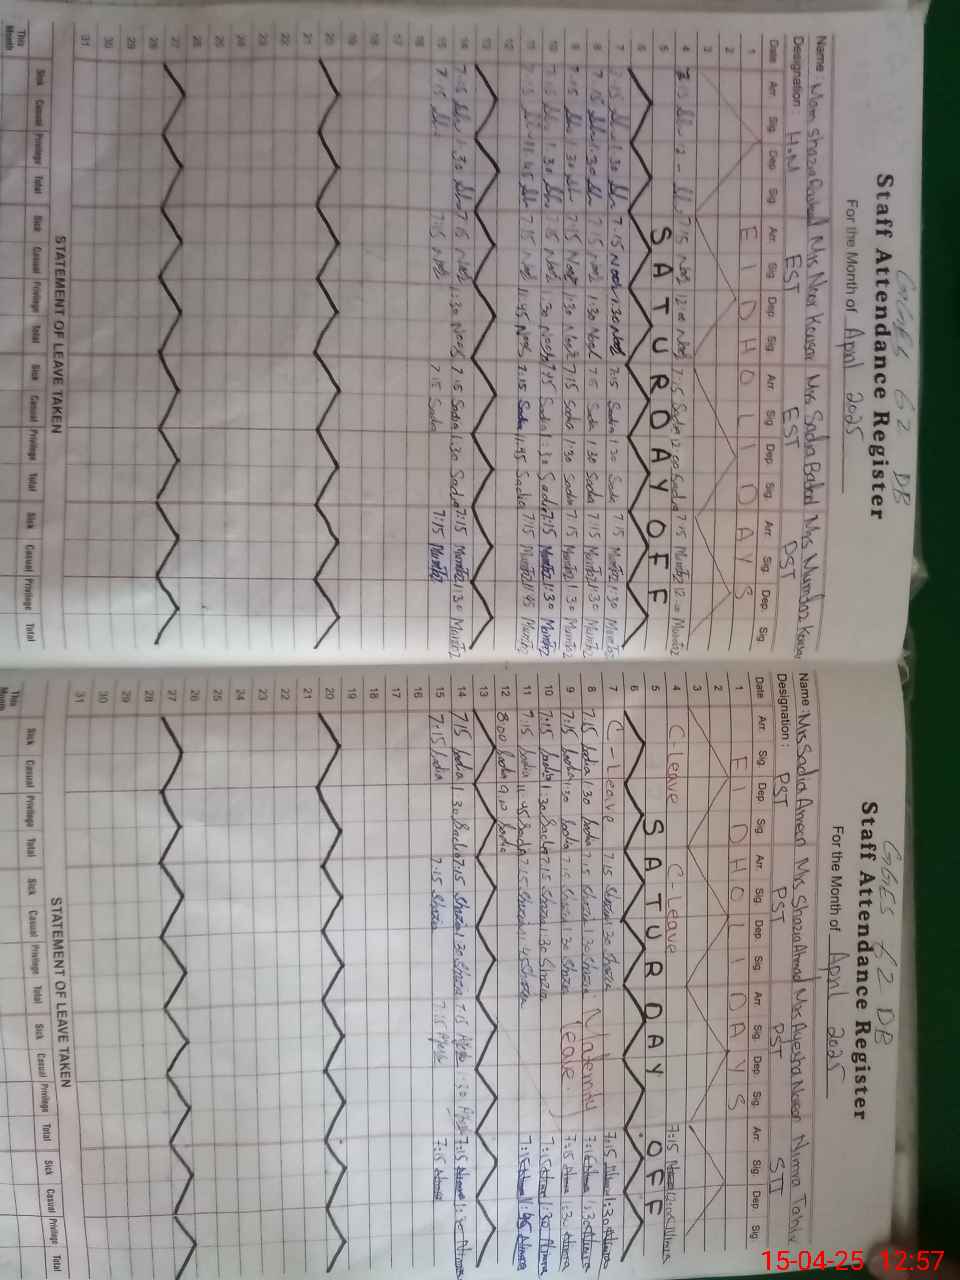 GGES 62 DB
Staff Attendance Register
For the Month of April 2025
Name : Mam Shazia Mrs Noor Kousar Mrs Sadia Batool Mrs Mumtaz Kousar
Designation : H.M EST EST PST
Date Arr. Sig. Dep. Sig. Arr. Sig. Dep. Sig. Arr. Sig. Dep. Sig. Arr. Sig. Dep. Sig.
1 E I D H O L I D A Y S
2
3
4 7:15 12 - 7:15 Noor 12:00 Noor 7:15 Sadia 12:00 Sadia 7:15 Mumtaz 12:00 Mumtaz
5 S A T U R D A Y O F F
6
7 7:15 1:30 7:15 Noor 1:30 Noor 7:15 Sadia 1:30 Sadia 7:15 Mumtaz 1:30 Mumtaz
8 7:15 1:30 7:15 Noor 1:30 Noor 7:15 Sadia 1:30 Sadia 7:15 Mumtaz 1:30 Mumtaz
9 7:15 1:30 7:15 Noor 1:30 Noor 7:15 Sadia 1:30 Sadia 7:15 Mumtaz 1:30 Mumtaz
10 7:15 1:30 7:15 Noor 1:30 Noor 7:15 Sadia 1:30 Sadia 7:15 Mumtaz 1:30 Mumtaz
11 7:15 11:45 7:15 Noor 11:45 Noor 7:15 Sadia 11:45 Sadia 7:15 Mumtaz 11:45 Mumtaz
12
13
14 7:15 1:30 7:15 Noor 1:30 Noor 7:15 Sadia 1:30 Sadia 7:15 Mumtaz 1:30 Mumtaz
15 7:15 7:15 Noor 7:15 Sadia 7:15 Mumtaz
16
17
18
19
20
21
22
23
24
25
26
27
28
29
30
31
This Month Sick Casual Privilege Total Sick Casual Privilege Total Sick Casual Privilege Total Sick Casual Privilege Total
STATEMENT OF LEAVE TAKEN
GGES 62 DB
Staff Attendance Register
For the Month of April 2025
Name : Mrs Sadia Ameen Mrs Shazia Ahmad Mrs Ayesha Noreen Nimra Tahir
Designation : PST PST PST STI
Date Arr. Sig. Dep. Sig. Arr. Sig. Dep. Sig. Arr. Sig. Dep. Sig. Arr. Sig. Dep. Sig.
1 E I D H O L I D A Y S
2
3
4 C-Leave C-Leave 7:15 Nimra 12:00 Nimra
5 S A T U R D A Y O F F
6
7 C-Leave 7:15 Shazia 1:30 Shazia 7:15 Nimra 1:30 Nimra
8 7:15 Sadia 1:30 Sadia 7:15 Shazia 1:30 Shazia Maternity 7:15 Nimra 1:30 Nimra
9 7:15 Sadia 1:30 Sadia 7:15 Shazia 1:30 Shazia Leave 7:15 Nimra 1:30 Nimra
10 7:15 Sadia 1:30 Sadia 7:15 Shazia 1:30 Shazia 7:15 Nimra 1:30 Nimra
11 7:15 Sadia 11:45 Sadia 7:15 Shazia 11:45 Shazia 7:15 Nimra 11:45 Nimra
12 8:00 Sadia Sadia
13
14 7:15 Sadia 1:30 Sadia 7:15 Shazia 1:30 Shazia 7:15 1:30 7:15 Nimra 1:30 Nimra
15 7:15 Sadia 7:15 Shazia 7:15 7:15 Nimra
16
17
18
19
20
21
22
23
24
25
26
27
28
29
30
31
This Month Sick Casual Privilege Total Sick Casual Privilege Total Sick Casual Privilege Total Sick Casual Privilege Total
STATEMENT OF LEAVE TAKEN
15-04-25 12:57